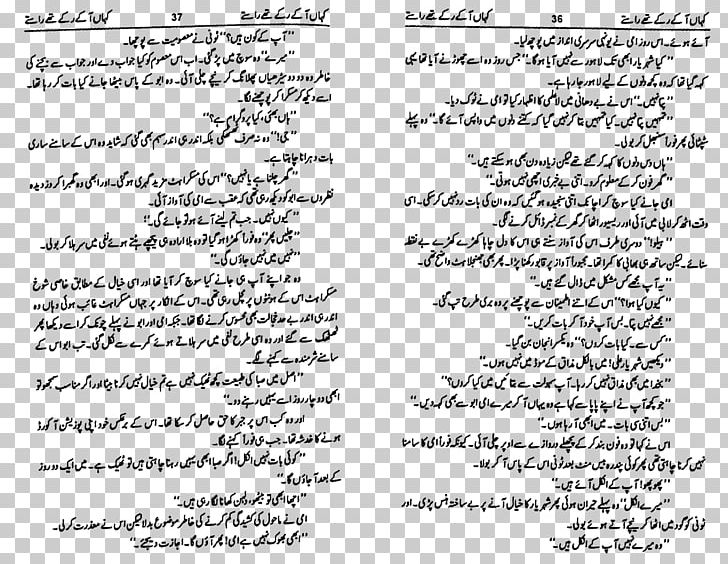 کہاں آ کے رکے تھے راستے 36
آئے ہوئے۔ اس روز امی نے یونہی سرسری انداز میں پوچھ لیا۔
’’کیا شہریار ابھی تک لاہور سے نہیں آیا ہوگا۔‘‘ جس روز وہ اسے چھوڑنے آیا تھا یہی
کہہ گیا تھا کہ وہ کچھ دنوں کے لیے لاہور جا رہا ہے۔
’’پتا نہیں۔‘‘ اس نے بے دھیانی میں لاعلمی کا اظہار کیا تو امی نے ٹوک دیا۔
’’کیا تمہیں پتا نہیں۔ کیا تمہیں بتا کر نہیں گیا کہ کتنے دنوں میں واپس آئے گا۔‘‘ وہ پہلے
سٹپٹائی پھر فوراً سنبھل کر بولی۔
’’ہاں دس دنوں کا کہہ کر گئے تھے لیکن زیادہ دن بھی ہو سکتے ہیں۔‘‘
’’گھر فون کر کے معلوم کرو۔ اتنی بے خبری اچھی نہیں ہوتی۔‘‘
امی جانے کیا سوچ کر اچانک اتنی سنجیدہ ہو گئیں کہ وہ ان کی بات رد نہیں کر سکی۔ اسی
وقت اٹھ کر لابی میں آئی اور ریسیور اٹھا کر گھر کے نمبر ڈائل کرنے لگی۔
’’ہیلو!‘‘ دوسری طرف اس کی آواز سنتے ہی اس کا دل چاہا کھڑے کھڑے بے نقط
سنائے۔ لیکن ساتھ ہی بھائی کا کمرا تھا۔ مجبوراً آواز پر قابو رکھنا پڑا۔ پھر بھی جھنجلاہٹ واضح تھی۔
’’یہ آپ مجھے کس مشکل میں ڈال گئے ہیں۔‘‘
’’کیوں کیا ہوا؟‘‘ اس کے اتنے اطمینان سے پوچھنے پر وہ بری طرح تپ گئی۔
’’مجھے نہیں پتا۔ بس آپ خود آ کر بات کریں۔‘‘
’’کس سے۔ کیا بات کروں؟‘‘ وہ یکسر انجان بن گیا۔
’’دیکھیں شہریار علی! میں بالکل مذاق کے موڈ میں نہیں ہوں۔‘‘
’’بخدا میں بھی مذاق نہیں کر رہا۔ آپ سہولت سے بتائیں میں کیا کروں؟‘‘
’’جو کچھ آپ نے اپنے پاپا سے کہا ہے وہ یہاں آ کر میرے امی ابو سے بھی کہہ دیں۔‘‘
’’بس اتنی سی بات۔ میں ابھی آ رہا ہوں۔‘‘
اس نے کہا تو وہ فون بند کر کے پچھلے دروازے سے اوپر چلی آئی۔ کیونکہ فوراً امی کا سامنا
نہیں کرنا چاہتی تھی پھر کوئی پندرہ بیس منٹ بعد ٹونی اس کے پاس آ کر بولا۔
’’پھوپھو! آپ کے انکل آئے ہیں۔‘‘
’’میرے انکل‘‘ وہ پہلے حیران ہوئی پھر شہریار کا خیال آنے پر بے ساختہ ہنس پڑی۔ اور
ٹونی کو گود میں اٹھا کر نیچے آتے ہوئے بولی۔
’’وہ میرے نہیں آپ کے انکل ہیں۔‘‘
کہاں آ کے رکے تھے راستے 37
’’آپ کے کون ہیں؟‘‘ ٹونی نے معصومیت سے پوچھا۔
’’میرے‘‘ وہ سوچ میں پڑ گئی۔ اب اس معصوم کو کیا جواب دے اور جواب سے بچنے کی
خاطر وہ دو دو سیڑھیاں پھلانگ کر نیچے چلی آئی۔ وہ ابو کے پاس بیٹھا جانے کیا بات کر رہا تھا۔
اسے دیکھ کر مسکرا کر پوچھنے لگا۔
’’ہاں بھئی، کیا پروگرام ہے؟‘‘
’’جی!‘‘ وہ نہ صرف ٹھٹھکی بلکہ اندر ہی اندر سہم بھی گئی کہ شاید وہ اس کے سامنے ساری
بات دہرانا چاہتا ہے۔
’’گھر چلنا ہے یا نہیں؟‘‘ اس کی مسکراہٹ مزید گہری ہو گئی۔ اور ابھی وہ گھبرا کر دزدیدہ
نظروں سے ابو کو دیکھ رہی تھی کہ عقب سے امی کی آواز آئی۔
’’کیوں نہیں۔ جب تم لینے آئے ہو تو جائے گی۔‘‘
’’چلیں پھر‘‘ وہ فوراً کھڑا ہو گیا تو وہ بلا ارادہ ہی پیچھے ہٹتے ہوئے نفی میں سر ہلا کر بولی۔
’’نہیں میں نہیں جاؤں گی۔‘‘
وہ جو اپنے آپ ہی جانے کیا سوچ کر آیا تھا اور اسی خیال کے مطابق خاصی شوخ
مسکراہٹ اس کے ہونٹوں پر مچل رہی تھی۔ اس کے انکار پر جہاں مسکراہٹ غائب ہوئی وہاں وہ
اندر ہی اندر بے حد خجالت بھی محسوس کرنے لگا تھا۔ جبکہ امی اور ابو نے پہلے چونک کر اسے دیکھا پھر
ٹھٹھک سے گئے اور وہ اسی طرح نفی میں سر ہلاتے ہوئے کمرے سے نکل گئی۔ تب ابو اس کے
سامنے شرمندہ سے کہنے لگے۔
’’اصل میں صبا کی طبیعت کچھ ٹھیک نہیں ہے تم خیال نہیں کرنا بیٹا اور اگر مناسب سمجھو تو
ابھی دو چار روز اسے یہیں رہنے دو۔‘‘
اور وہ کب اس پر جبر کا حق حاصل کر سکا تھا۔ اس کے برعکس خود اپنی پوزیشن آکورڈ
ہونے کا خدشہ تھا۔ جب ہی فوراً کہنے لگا۔
’’کوئی بات نہیں انکل! اگر صبا ابھی یہیں رہنا چاہتی ہیں تو ٹھیک ہے۔ میں ایک دو روز
کے بعد آ جاؤں گا۔‘‘
’’اچھا ابھی تو بیٹھو، دلہن کھانا لگا رہی ہیں۔‘‘
امی نے ماحول کی کشیدگی کم کرنے کی خاطر موضوع بدلا لیکن اس نے معذرت کر لی۔
’’ابھی بھوک نہیں ہے امی! پھر آؤں گا۔ اجازت دیجئے۔‘‘